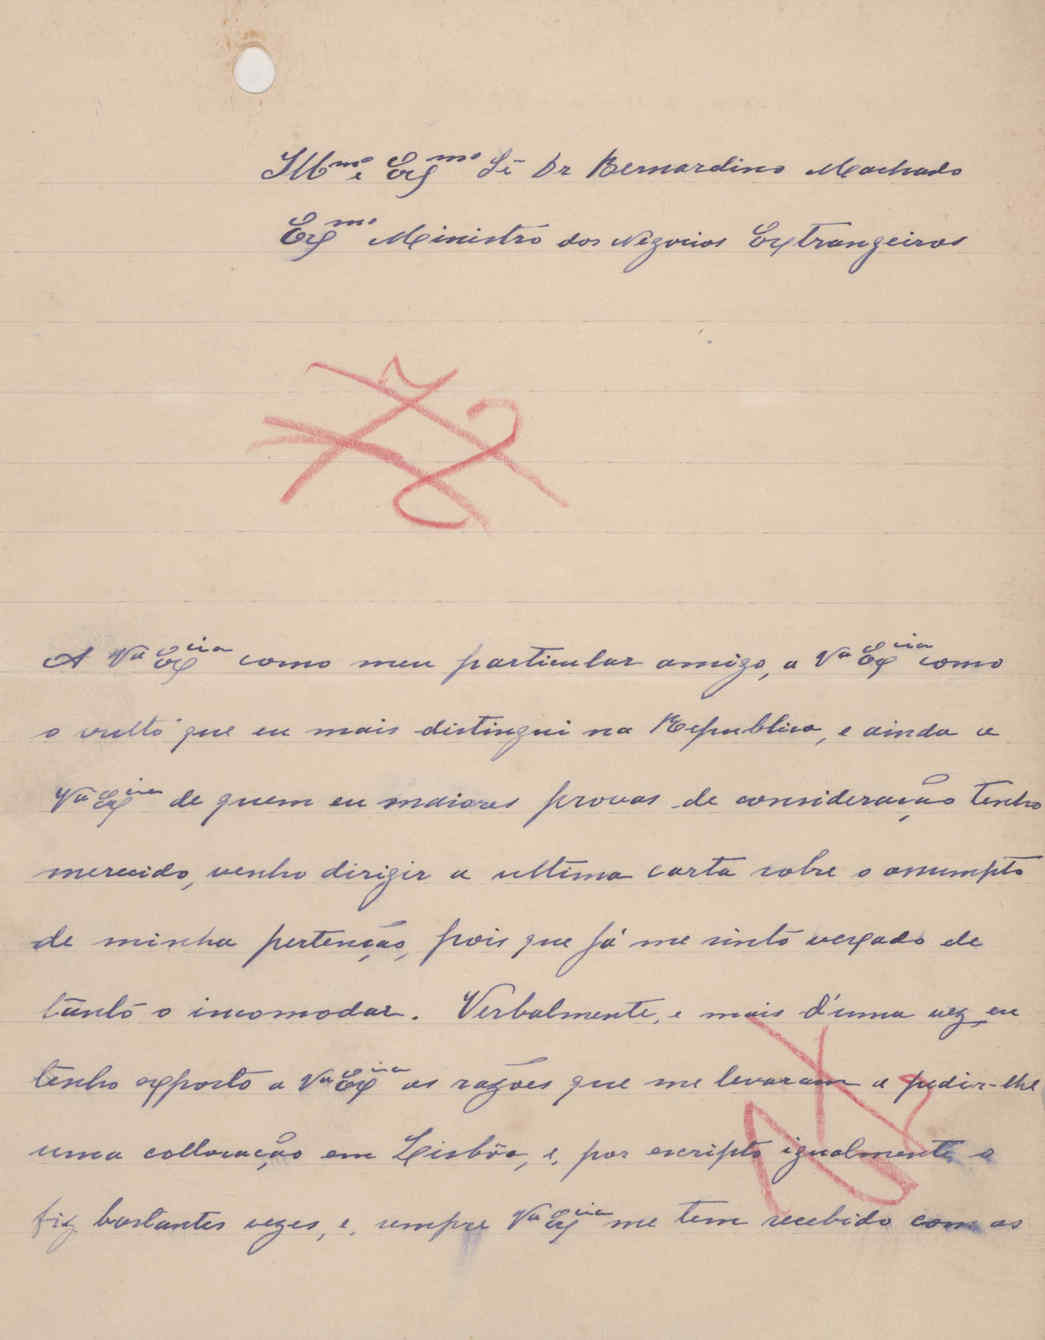 Ill<sup>mo</sup> e Ex<sup>mo</sup> Sr̃ Dr Bernardino Machado
Ex<sup>mo</sup> Ministro dos Negocios Extrangeiros
A V<sup>a</sup> Ex<sup>cia</sup> como meu particular amigo, a V<sup>a</sup> Ex<sup>cia</sup> como
o vulto que eu mais distingui na Republica, e ainda a
V<sup>a</sup> Ex<sup>cia</sup> de quem eu maiores provas de consideração tenho
merecido, venho dirigir a ultima carta sobre o assumpto
de minha pertenção, pois que já me sinto vexado de
tanto o incomodar. Verbalmente, e mais d'uma vez, eu
tenho exposto a V<sup>a</sup> Ex<sup>cia</sup> as razões que me levaram a pedir-lhe
uma collocação em Lisbôa, e, por escripto igualmente o
fiz bastantes vezes, e, sempre V<sup>a</sup> Ex<sup>cia</sup> me tem recebido com as